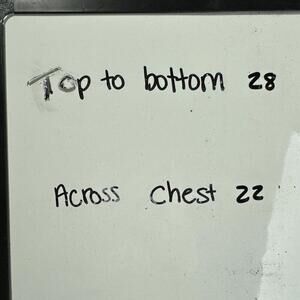 Top to bottom 28
Across chest 22